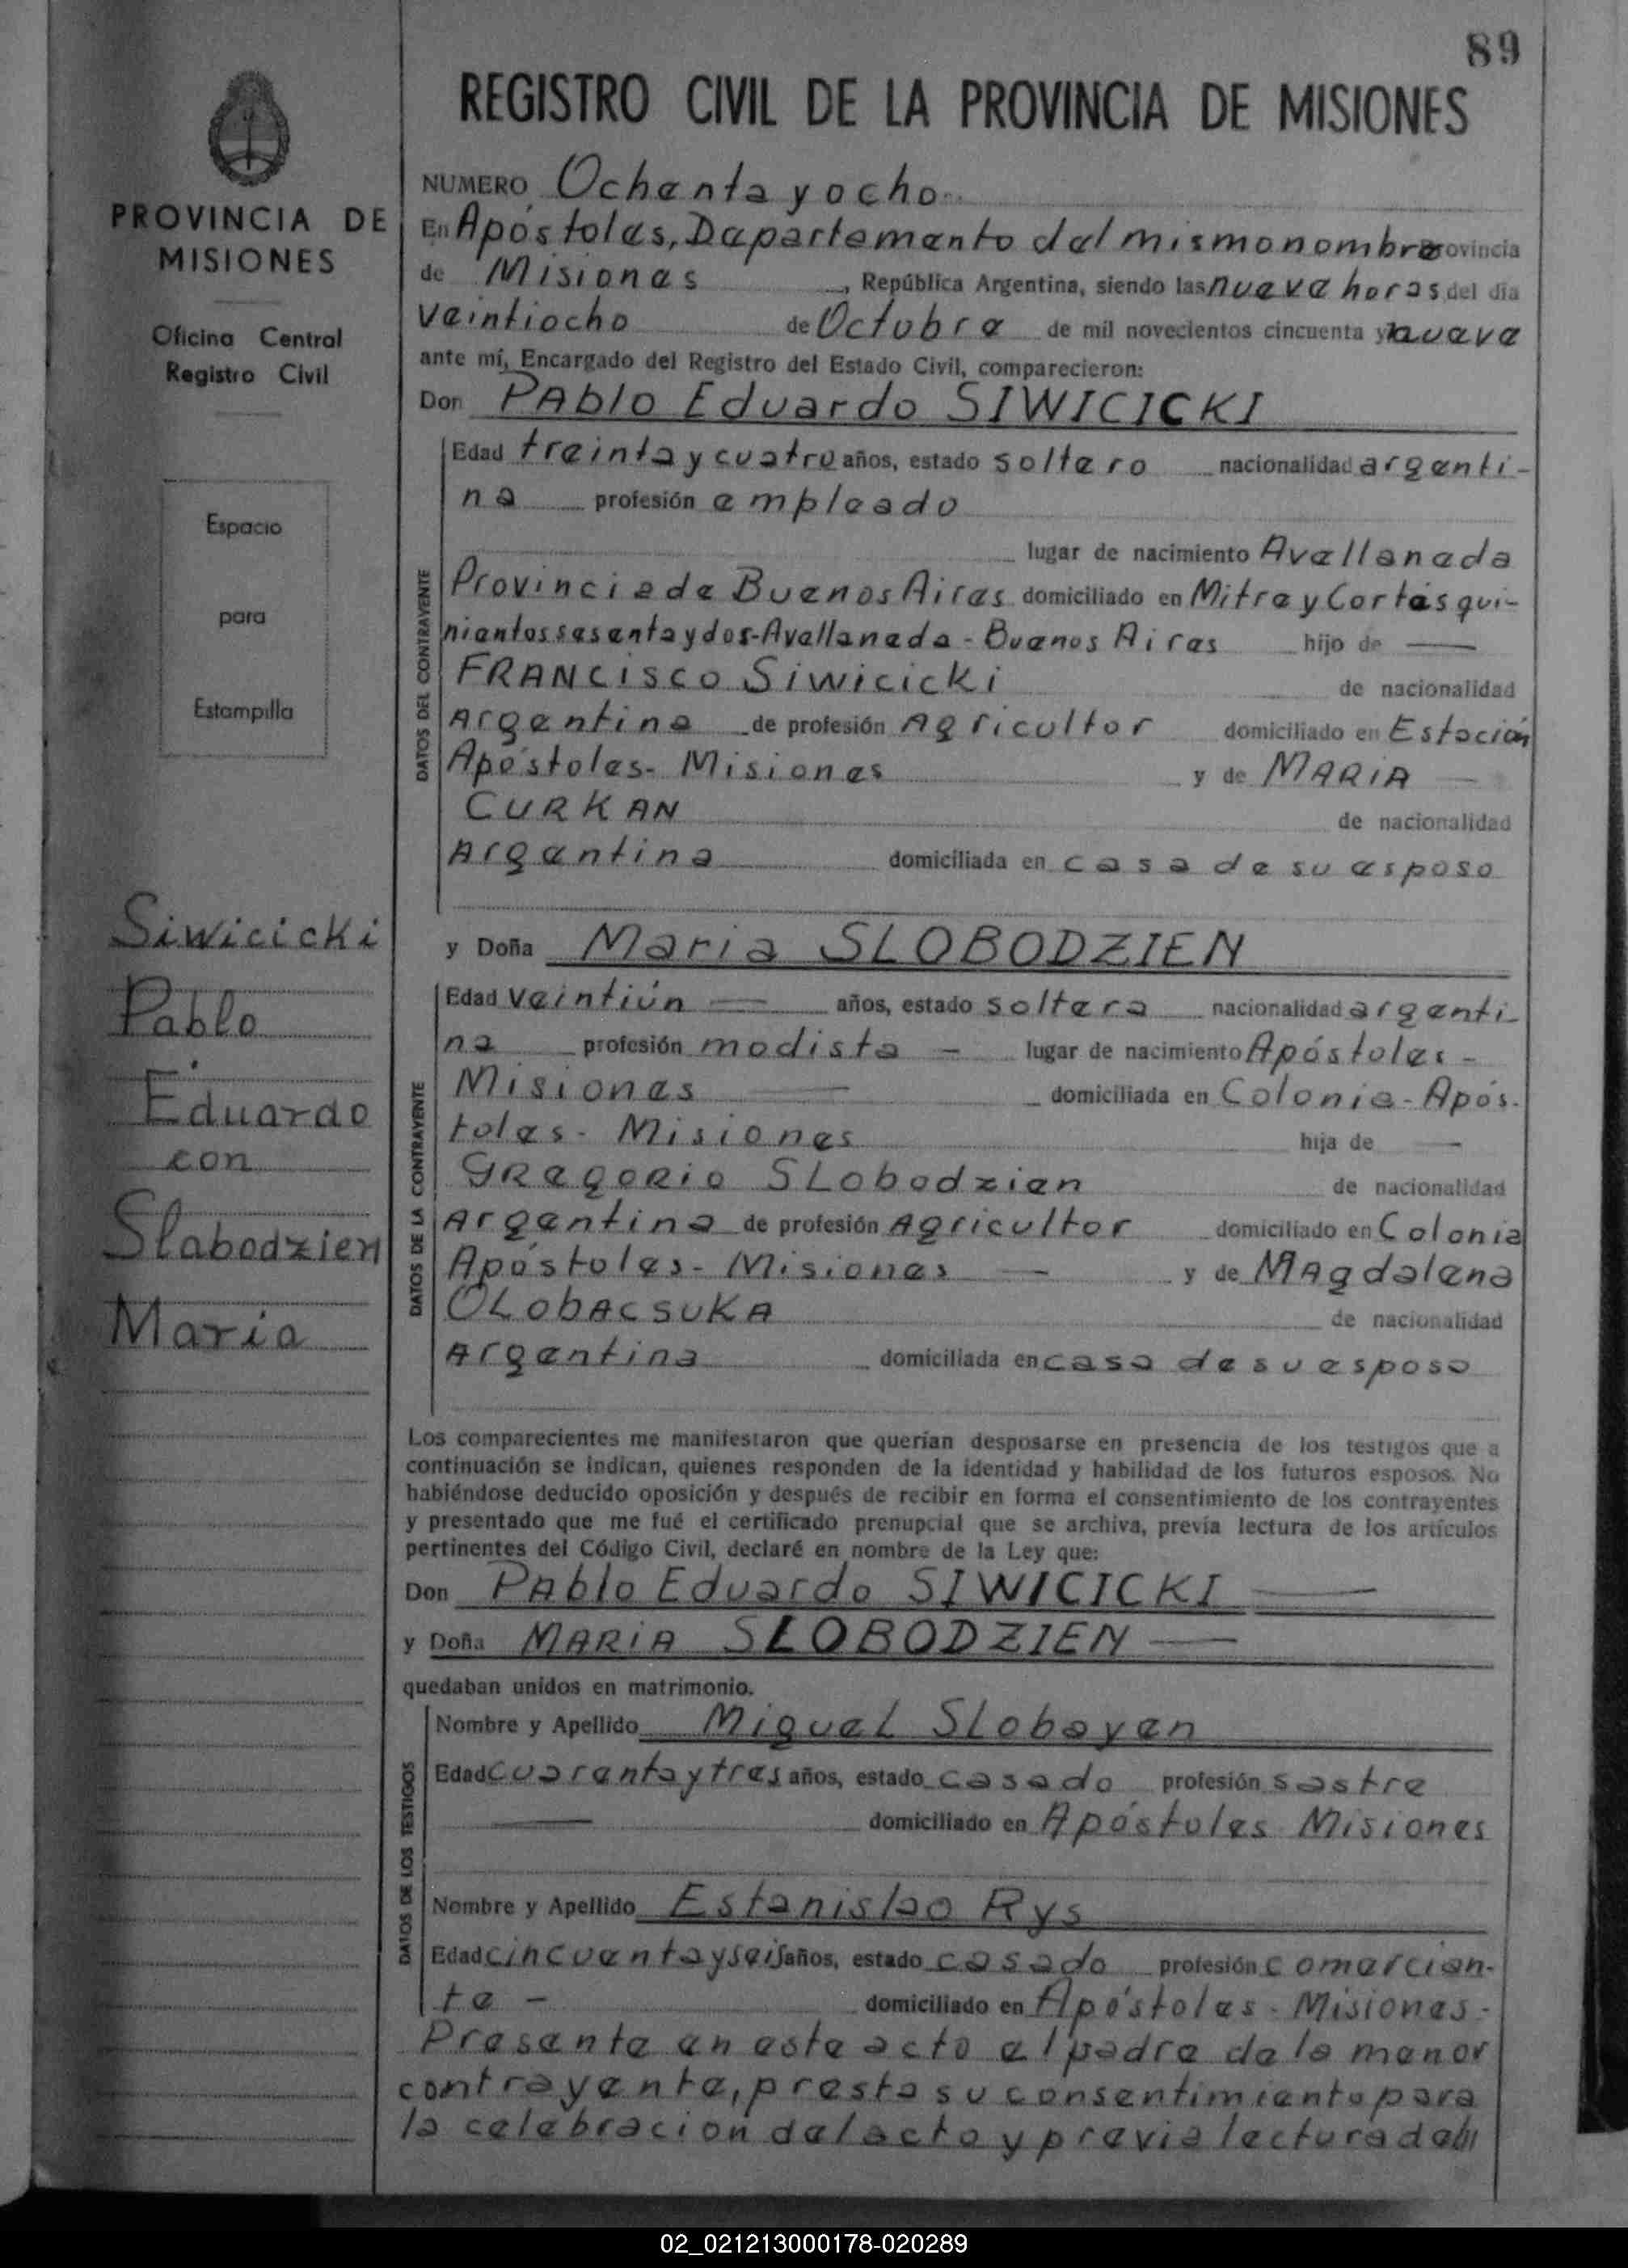 89
REGISTRO CIVIL DE LA PROVINCIA DE MISIONES
PROVINCIA DE
MISIONES
Oficina Central
Registro Civil
Espacio
para
Estampilla
Siwicicki
Pablo
Eduardo
con
Slabodzien
Maria
NUMERO Ochenta y ocho
En Apóstoles, Departamento del mismo nombre Provincia
de Misiones, República Argentina, siendo las nueve horas del día
veintiocho de Octubre de mil novecientos cincuenta y nueve
ante mí, Encargado del Registro del Estado Civil, comparecieron:
Don PAblo Eduardo SIWICICKI
DATOS DEL CONTRAYENTE
Edad treinta y cuatro años, estado soltero nacionalidad argenti-
na profesión empleado
lugar de nacimiento Avellaneda
Provincia de Buenos Aires domiciliado en Mitre y Cortés qui-
nientos sesenta y dos-Avellaneda - Buenos Aires hijo de —
FRANCISCO Siwicicki de nacionalidad
Argentina de profesión Agricultor domiciliado en Estación
Apóstoles- Misiones y de MARIA —
CURKAN de nacionalidad
Argentina domiciliada en casa de su esposo
y Doña Maria SLOBODZIEN
DATOS DE LA CONTRAYENTE
Edad veintiún — años, estado soltera nacionalidad argenti-
na profesión modista - lugar de nacimiento Apóstoles -
Misiones — domiciliada en Colonia - Após-
toles- Misiones hija de —
GREGORIO SLobodzien de nacionalidad
Argentina de profesión Agricultor domiciliado en Colonia
Apóstoles- Misiones — y de MAgdalena
OLObACSUKA de nacionalidad
Argentina domiciliada en casa de su esposo
Los comparecientes me manifestaron que querían desposarse en presencia de los testigos que a
continuación se indican, quienes responden de la identidad y habilidad de los futuros esposos. No
habiéndose deducido oposición y después de recibir en forma el consentimiento de los contrayentes
y presentado que me fué el certificado prenupcial que se archiva, previa lectura de los artículos
pertinentes del Código Civil, declaré en nombre de la Ley que:
Don PAblo Eduardo SIWICICKI —
y Doña MARIA SLOBODZIEN —
quedaban unidos en matrimonio.
DATOS DE LOS TESTIGOS
Nombre y Apellido Miguel SLobayen
Edad cuarenta y tres años, estado casado profesión sastre
— domiciliado en Apóstoles Misiones
Nombre y Apellido Estanislao Rys
Edad cincuenta y seis años, estado casado profesión comercian-
te - domiciliado en Apóstoles - Misiones -
Presente en este acto el padre de la menor
contrayente, presta su consentimiento para
la celebracion del acto y previa lectura del
02_021213000178-020289